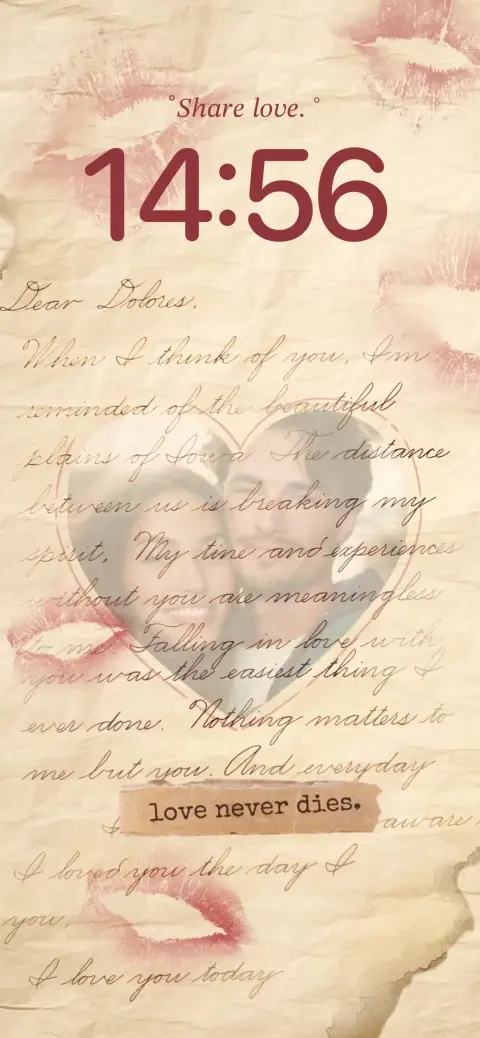 °Share love.°
14:56
Dear Dolores.
When I think of you, I'm
reminded of the beautiful
plains of Iowa. The distance
between us is breaking my
spirit. My tine and experiences
without you are meaningless
to me. Falling in love with
you was the easiest thing I
ever done. Nothing matters to
me but you. And everyday
love never dies.
aware
I loved you the day I
you.
I love you today